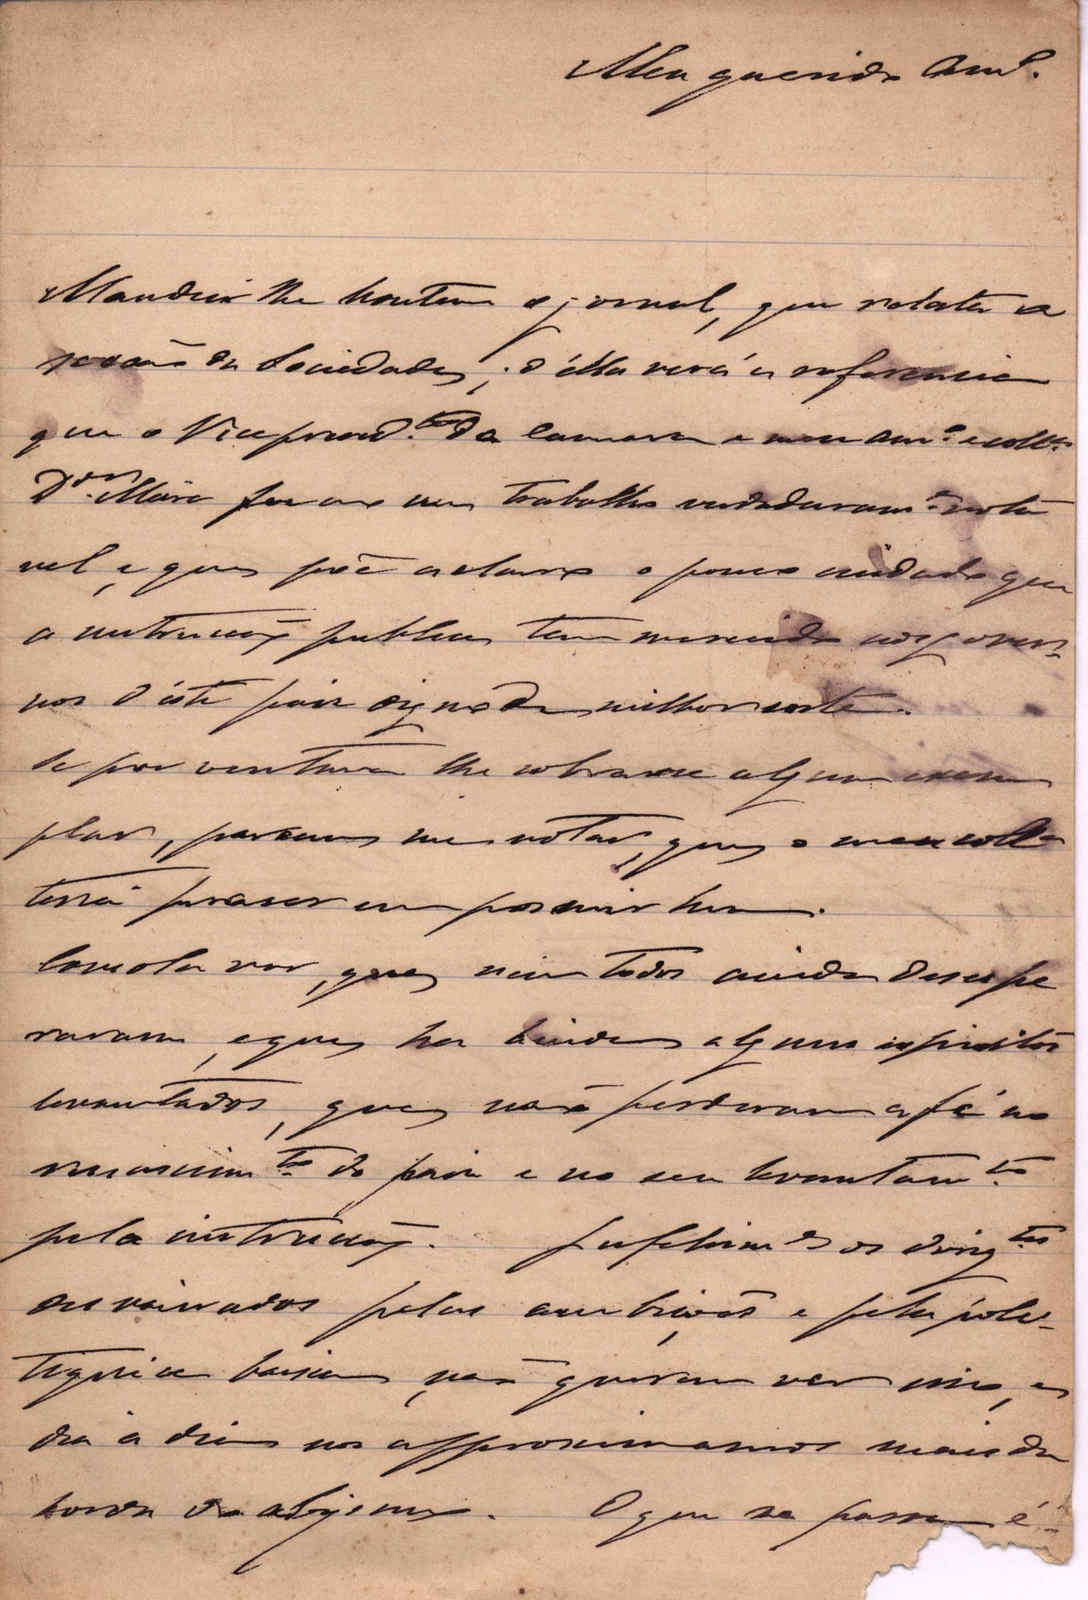 Meu querido Am.º
Mandei lhe hontem o jornal, que relata a
sessão da Sociedade, d'ella verá a referencia
que o Vice presid.te da Camara e meu am.º e coll.ª
D.or fez ao seu trabalho verdadeiram.te nota
vel, e que põe a claro o pouco cuidado que
a instrucção publica tem merecido aos gover-
nos d'este paiz digno de melhor sorte.
Se por ventura lhe sobrasse algum exem
plar, parecia me notar, que o meu coll.ª
terá praser em possuir hum.
Consola ver, que nem todos ainda desespe
raram, e que ha ainda alguns espiritos
levantados, que não perderam a fé no
renascim.to do paiz e no seu levantam.to
pela instrucção. Infelizm.e os dirig.tes
desvairados pelas ambições e pela pole-
tiquice baixa, não querem ver isso, e
dia a dia nos approximamos mais da
borda do abysmo. O que se passa é